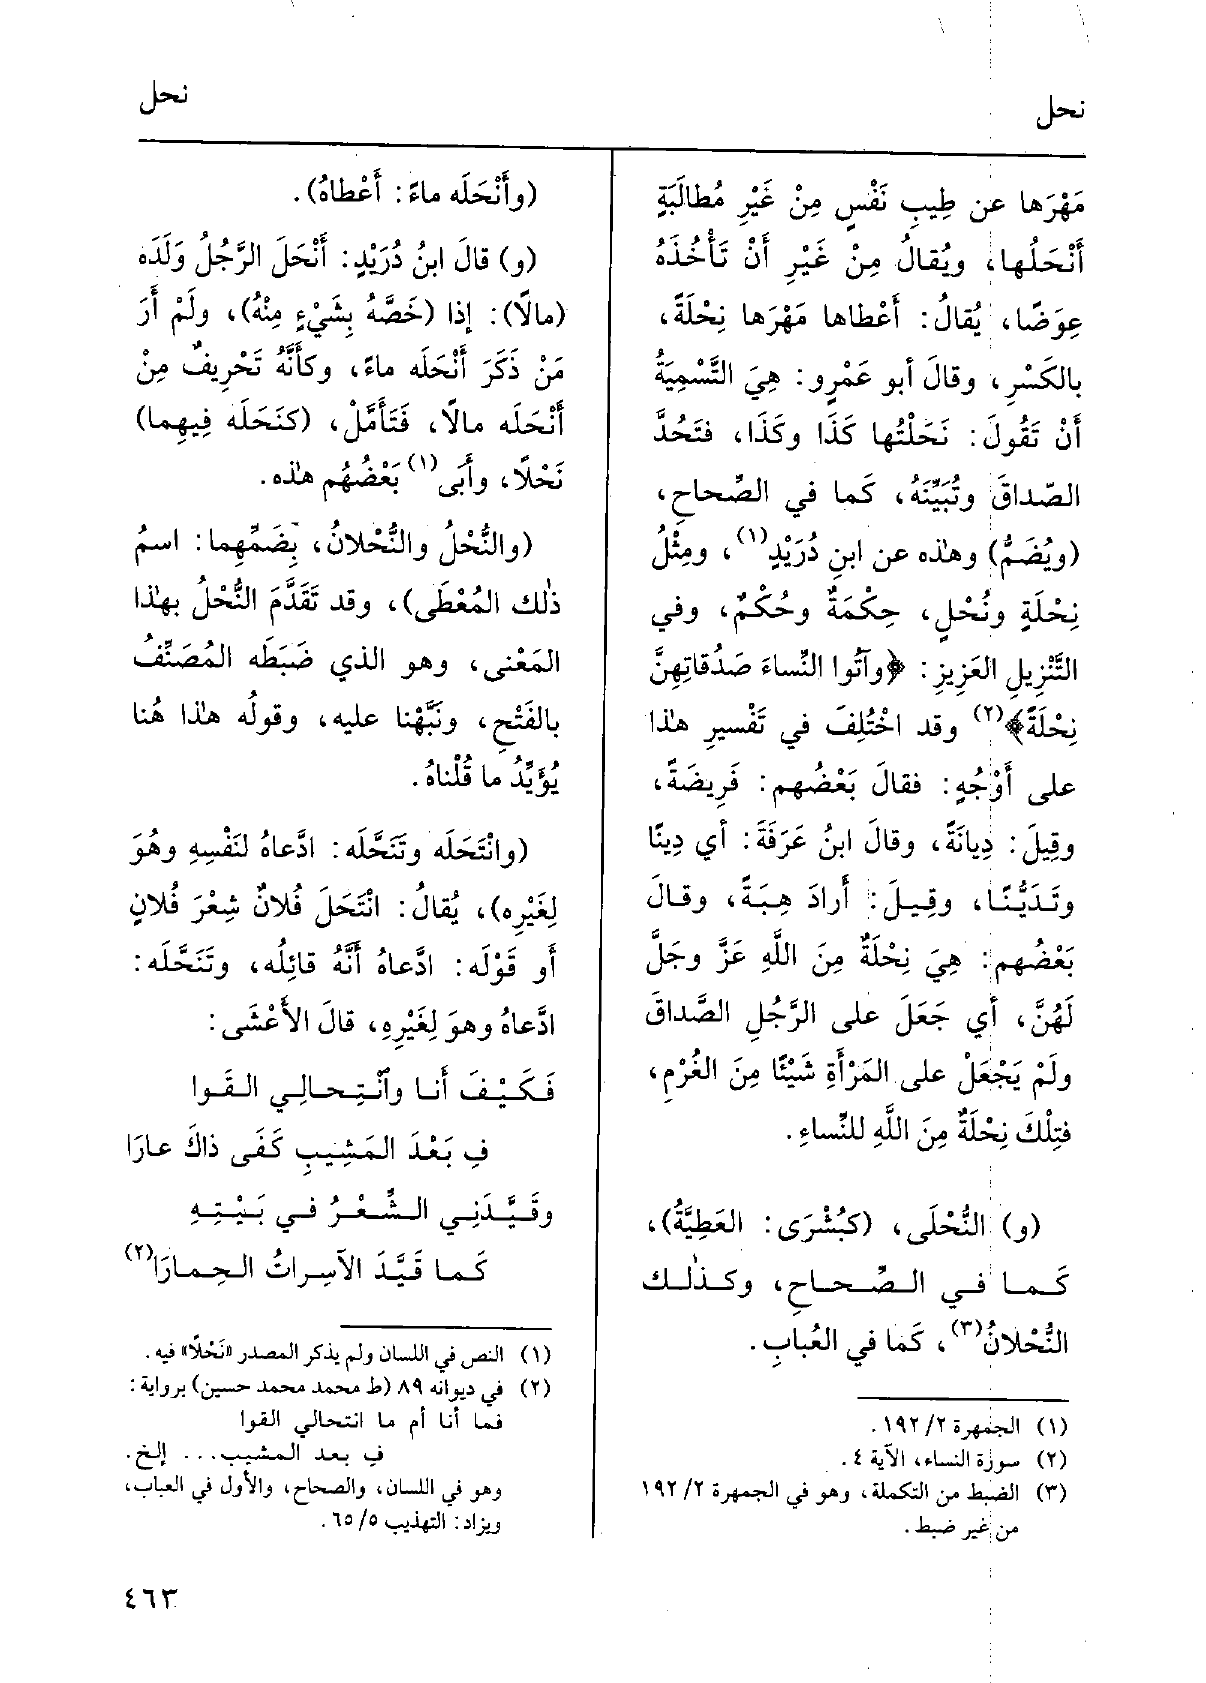 نحل
نحل
مَهْرَها عن طِيبِ نَفْسٍ مِنْ غَيْرِ مُطالَبَةٍ
أَنْحَلُها، ويُقالُ مِنْ غَيْرِ أَنْ تَأْخُذَهُ
عِوَضًا، يُقالُ: أَعْطاها مَهْرَها نِحْلَةً،
بالكَسْرِ، وقالَ أبو عَمْرٍو: هِيَ التَّسْمِيَةُ
أَنْ تَقُولَ: نَحَلْتُها كَذَا وكَذَا، فتَحُدَّ
الصّداقَ وتُبَيِّنَهُ، كَما في الصِّحاحِ،
(ويُضَمُّ) وهٰذه عن ابنِ دُرَيْدٍ(١)، ومِثْلُ
نِحْلَةٍ ونُحْلٍ، حِكْمَةٌ وحُكْمٌ، وفي
التَّنْزِيلِ العَزِيزِ: ﴿وآتُوا النِّساءَ صَدُقاتِهِنَّ
نِحْلَةً﴾(٢) وقد اخْتُلِفَ في تَفْسيرِ هٰذا
على أَوْجُهٍ: فقالَ بَعْضُهم: فَرِيضَةً،
وقِيلَ: دِيانَةً، وقالَ ابنُ عَرَفَةَ: أي دِينًا
وتَدَيُّنًا، وقِيلَ: أرادَ هِبَةً، وقالَ
بَعْضُهم: هِيَ نِحْلَةٌ مِنَ اللَّهِ عَزَّ وجَلَّ
لَهُنَّ، أي جَعَلَ على الرَّجُلِ الصَّداقَ
ولَمْ يَجْعَلْ على المَرْأَةِ شَيْئًا مِنَ الغُرْمِ،
فتِلْكَ نِحْلَةٌ مِنَ اللَّهِ للنِّساءِ.
(و) النُّحْلَى، (كبُشْرَى: العَطِيَّةُ)،
كَما في الصِّحاحِ، وكذٰلك
النُّحْلانُ(٣)، كَما في العُبابِ.
(١) الجمهرة ٢/ ١٩٢.
(٢) سورة النساء، الآية ٤.
(٣) الضبط من التكملة، وهو في الجمهرة ٢/ ١٩٢
من غير ضبط.
(وأَنْحَلَه ماءً: أَعْطاهُ).
(و) قالَ ابنُ دُرَيْدٍ: أَنْحَلَ الرَّجُلُ وَلَدَه
(مالًا): إذا (خَصَّهُ بِشَيْءٍ مِنْهُ)، ولَمْ أَرَ
مَنْ ذَكَرَ أَنْحَلَه ماءً، وكأَنَّهُ تَحْرِيفٌ مِنْ
أَنْحَلَه مالًا، فَتَأَمَّلْ، (كنَحَلَه فِيهِما)
نَحْلًا، وأَبَى(١) بَعْضُهُم هٰذه.
(والنُّحْلُ والنُّحْلانُ، بِضَمِّهِما: اسمُ
ذٰلك المُعْطَى)، وقد تَقَدَّمَ النُّحْلُ بهٰذا
المَعْنى، وهو الذي ضَبَطَه المُصَنِّفُ
بالفَتْحِ، ونَبَّهْنا عليه، وقولُه هٰذا هُنا
يُؤَيِّدُ ما قُلْناهُ.
(وانْتَحَلَه وتَنَحَّلَه: ادَّعاهُ لنَفْسِهِ وهُوَ
لِغَيْرِه)، يُقالُ: انْتَحَلَ فُلانٌ شِعْرَ فُلانٍ
أو قَوْلَه: ادَّعاهُ أَنَّهُ قائِلُه، وتَنَحَّلَه:
ادَّعاهُ وهوَ لِغَيْرِهِ، قالَ الأَعْشَى:
فَكَيْفَ أَنا وٱنْتِحالِي القَوا
فِ بَعْدَ المَشِيبِ كَفَى ذاكَ عارَا
وقَيَّدَنِي الشِّعْرُ في بَيْتِهِ
كَما قَيَّدَ الآسِراتُ الحِمارَا(٢)
(١) النص في اللسان ولم يذكر المصدر «نَحْلًا» فيه.
(٢) في ديوانه ٨٩ (ط محمد محمد حسين) برواية:
فما أنا أم ما انتحالي القوا
فِ بعد المشيب... إلخ.
وهو في اللسان، والصحاح، والأول في العباب،
ويزاد: التهذيب ٥/ ٦٥.
٤٦٣